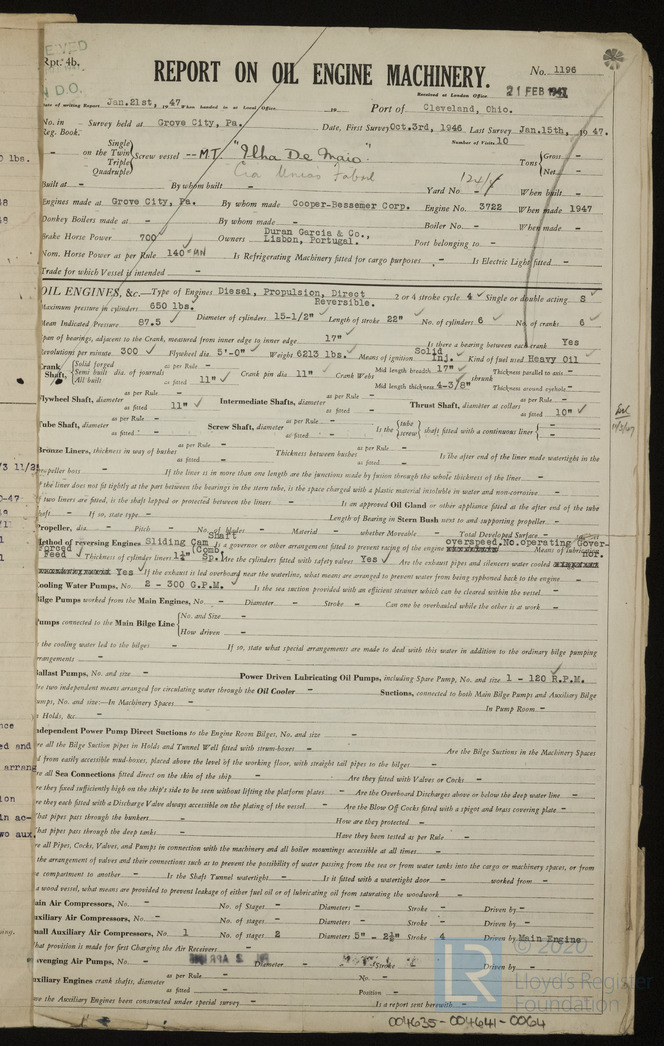 Rpt. 4b.
REPORT ON OIL ENGINE MACHINERY.
No. 1196
Received at London Office 21 FEB 1947
Date of writing Report Jan.21st, 1947. When handed in at Local Office 19 Port of Cleveland, Ohio.
No. in Reg. Book. Survey held at Grove City, Pa. Date, First Survey Oct.3rd, 1946 Last Survey Jan.15th, 1947.
Number of Visits 10
on the Single Twin Triple Quadruple Screw vessel -- M.T. "Ilha De Maio" Tons Gross - Net -
Built at - By whom built - Yard No. - When built -
Engines made at Grove City, Pa. By whom made Cooper-Bessemer Corp. Engine No. 3722 When made 1947
Donkey Boilers made at - By whom made - Boiler No. - When made -
Brake Horse Power 700 Owners Duran Garcia & Co., Lisbon, Portugal. Port belonging to -
Nom. Horse Power as per Rule 140 Is Refrigerating Machinery fitted for cargo purposes - Is Electric Light fitted -
Trade for which Vessel is intended -
OIL ENGINES, &c. Type of Engines Diesel, Propulsion, Direct Reversible. 2 or 4 stroke cycle 4 Single or double acting S
Maximum pressure in cylinders 650 lbs. Diameter of cylinders 15-1/2" Length of stroke 22" No. of cylinders 6 No. of cranks 6
Mean Indicated Pressure 87.5
Span of bearings, adjacent to the Crank, measured from inner edge to inner edge 17" Is there a bearing between each crank Yes
Revolutions per minute 300 Flywheel dia. 5'-0" Weight 6213 lbs. Means of ignition Solid Inj. Kind of fuel used Heavy Oil
Crank Shaft, Solid forged Semi built All built dia. of journals as per Rule as fitted 11" Crank pin dia. 11" Crank Webs Mid length breadth 17" Mid length thickness 4-3/8" shrunk Thickness parallel to axis - Thickness around eyehole -
Flywheel Shaft, diameter as per Rule as fitted 11" Intermediate Shafts, diameter as per Rule as fitted - Thrust Shaft, diameter at collars as per Rule as fitted 10"
Tube Shaft, diameter as per Rule as fitted - Screw Shaft, diameter as per Rule as fitted - Is the tube screw shaft fitted with a continuous liner -
Bronze Liners, thickness in way of bushes as per Rule as fitted - Thickness between bushes as per Rule as fitted - Is the after end of the liner made watertight in the
propeller boss - If the liner is in more than one length are the junctions made by fusion through the whole thickness of the liner -
If the liner does not fit tightly at the part between the bearings in the stern tube, is the space charged with a plastic material insoluble in water and non-corrosive -
If two liners are fitted, is the shaft lapped or protected between the liners - Is an approved Oil Gland or other appliance fitted at the after end of the tube
shaft - If so, state type - Length of Bearing in Stern Bush next to and supporting propeller -
Propeller, dia. - Pitch - No. of blades - Material - whether Moveable - Total Developed Surface -
Method of reversing Engines Sliding Cam Shaft Is a governor or other arrangement fitted to prevent racing of the engine overspeed. No. operating Governor. Means of lubrication
Forced Feed Thickness of cylinder liners 1¼" (Comb. Sp. Are the cylinders fitted with safety valves Yes Are the exhaust pipes and silencers water cooled
Yes If the exhaust is led overboard near the waterline, what means are arranged to prevent water from being syphoned back to the engine -
Cooling Water Pumps, No. 2 - 300 G.P.M. Is the sea suction provided with an efficient strainer which can be cleared within the vessel -
Bilge Pumps worked from the Main Engines, No. - Diameter - Stroke - Can one be overhauled while the other is at work -
Pumps connected to the Main Bilge Line No. and Size - How driven -
Is the cooling water led to the bilges - If so, state what special arrangements are made to deal with this water in addition to the ordinary bilge pumping
arrangements -
Ballast Pumps, No. and size - Power Driven Lubricating Oil Pumps, including Spare Pump, No. and size 1 - 120 R.P.M.
Are two independent means arranged for circulating water through the Oil Cooler - Suctions, connected to both Main Bilge Pumps and Auxiliary Bilge
Pumps, No. and size:-In Machinery Spaces - In Pump Room -
In Holds, &c. -
Independent Power Pump Direct Suctions to the Engine Room Bilges, No. and size -
Are all the Bilge Suction pipes in Holds and Tunnel Well fitted with strum-boxes - Are the Bilge Suctions in the Machinery Spaces
led from easily accessible mud-boxes, placed above the level of the working floor, with straight tail pipes to the bilges -
Are all Sea Connections fitted direct on the skin of the ship - Are they fitted with Valves or Cocks -
Are they fixed sufficiently high on the ship's side to be seen without lifting the platform plates - Are the Overboard Discharges above or below the deep water line -
Are they each fitted with a Discharge Valve always accessible on the plating of the vessel - Are the Blow Off Cocks fitted with a spigot and brass covering plate -
What pipes pass through the bunkers - How are they protected -
What pipes pass through the deep tanks - Have they been tested as per Rule -
Are all Pipes, Cocks, Valves, and Pumps in connection with the machinery and all boiler mountings accessible at all times -
Is the arrangement of valves and their connections such as to prevent the possibility of water passing from the sea or from water tanks into the cargo or machinery spaces, or from
one compartment to another - Is the Shaft Tunnel watertight - Is it fitted with a watertight door - worked from -
If a wood vessel, what means are provided to prevent leakage of either fuel oil or lubricating oil from saturating the woodwork -
Main Air Compressors, No. - No. of stages - Diameters - Stroke - Driven by -
Auxiliary Air Compressors, No. - No. of stages - Diameters - Stroke - Driven by -
Small Auxiliary Air Compressors, No. 1 No. of stages 2 Diameters 5" - 2½" Stroke 4 Driven by Main Engine
What provision is made for first Charging the Air Receivers
Scavenging Air Pumps, No. - Diameter Stroke Driven by -
Auxiliary Engines crank shafts, diameter as per Rule as fitted - No. - Position -
Have the Auxiliary Engines been constructed under special survey - Is a report sent herewith -
004635-004641-0064
LR © 2020 Lloyd's Register Foundation